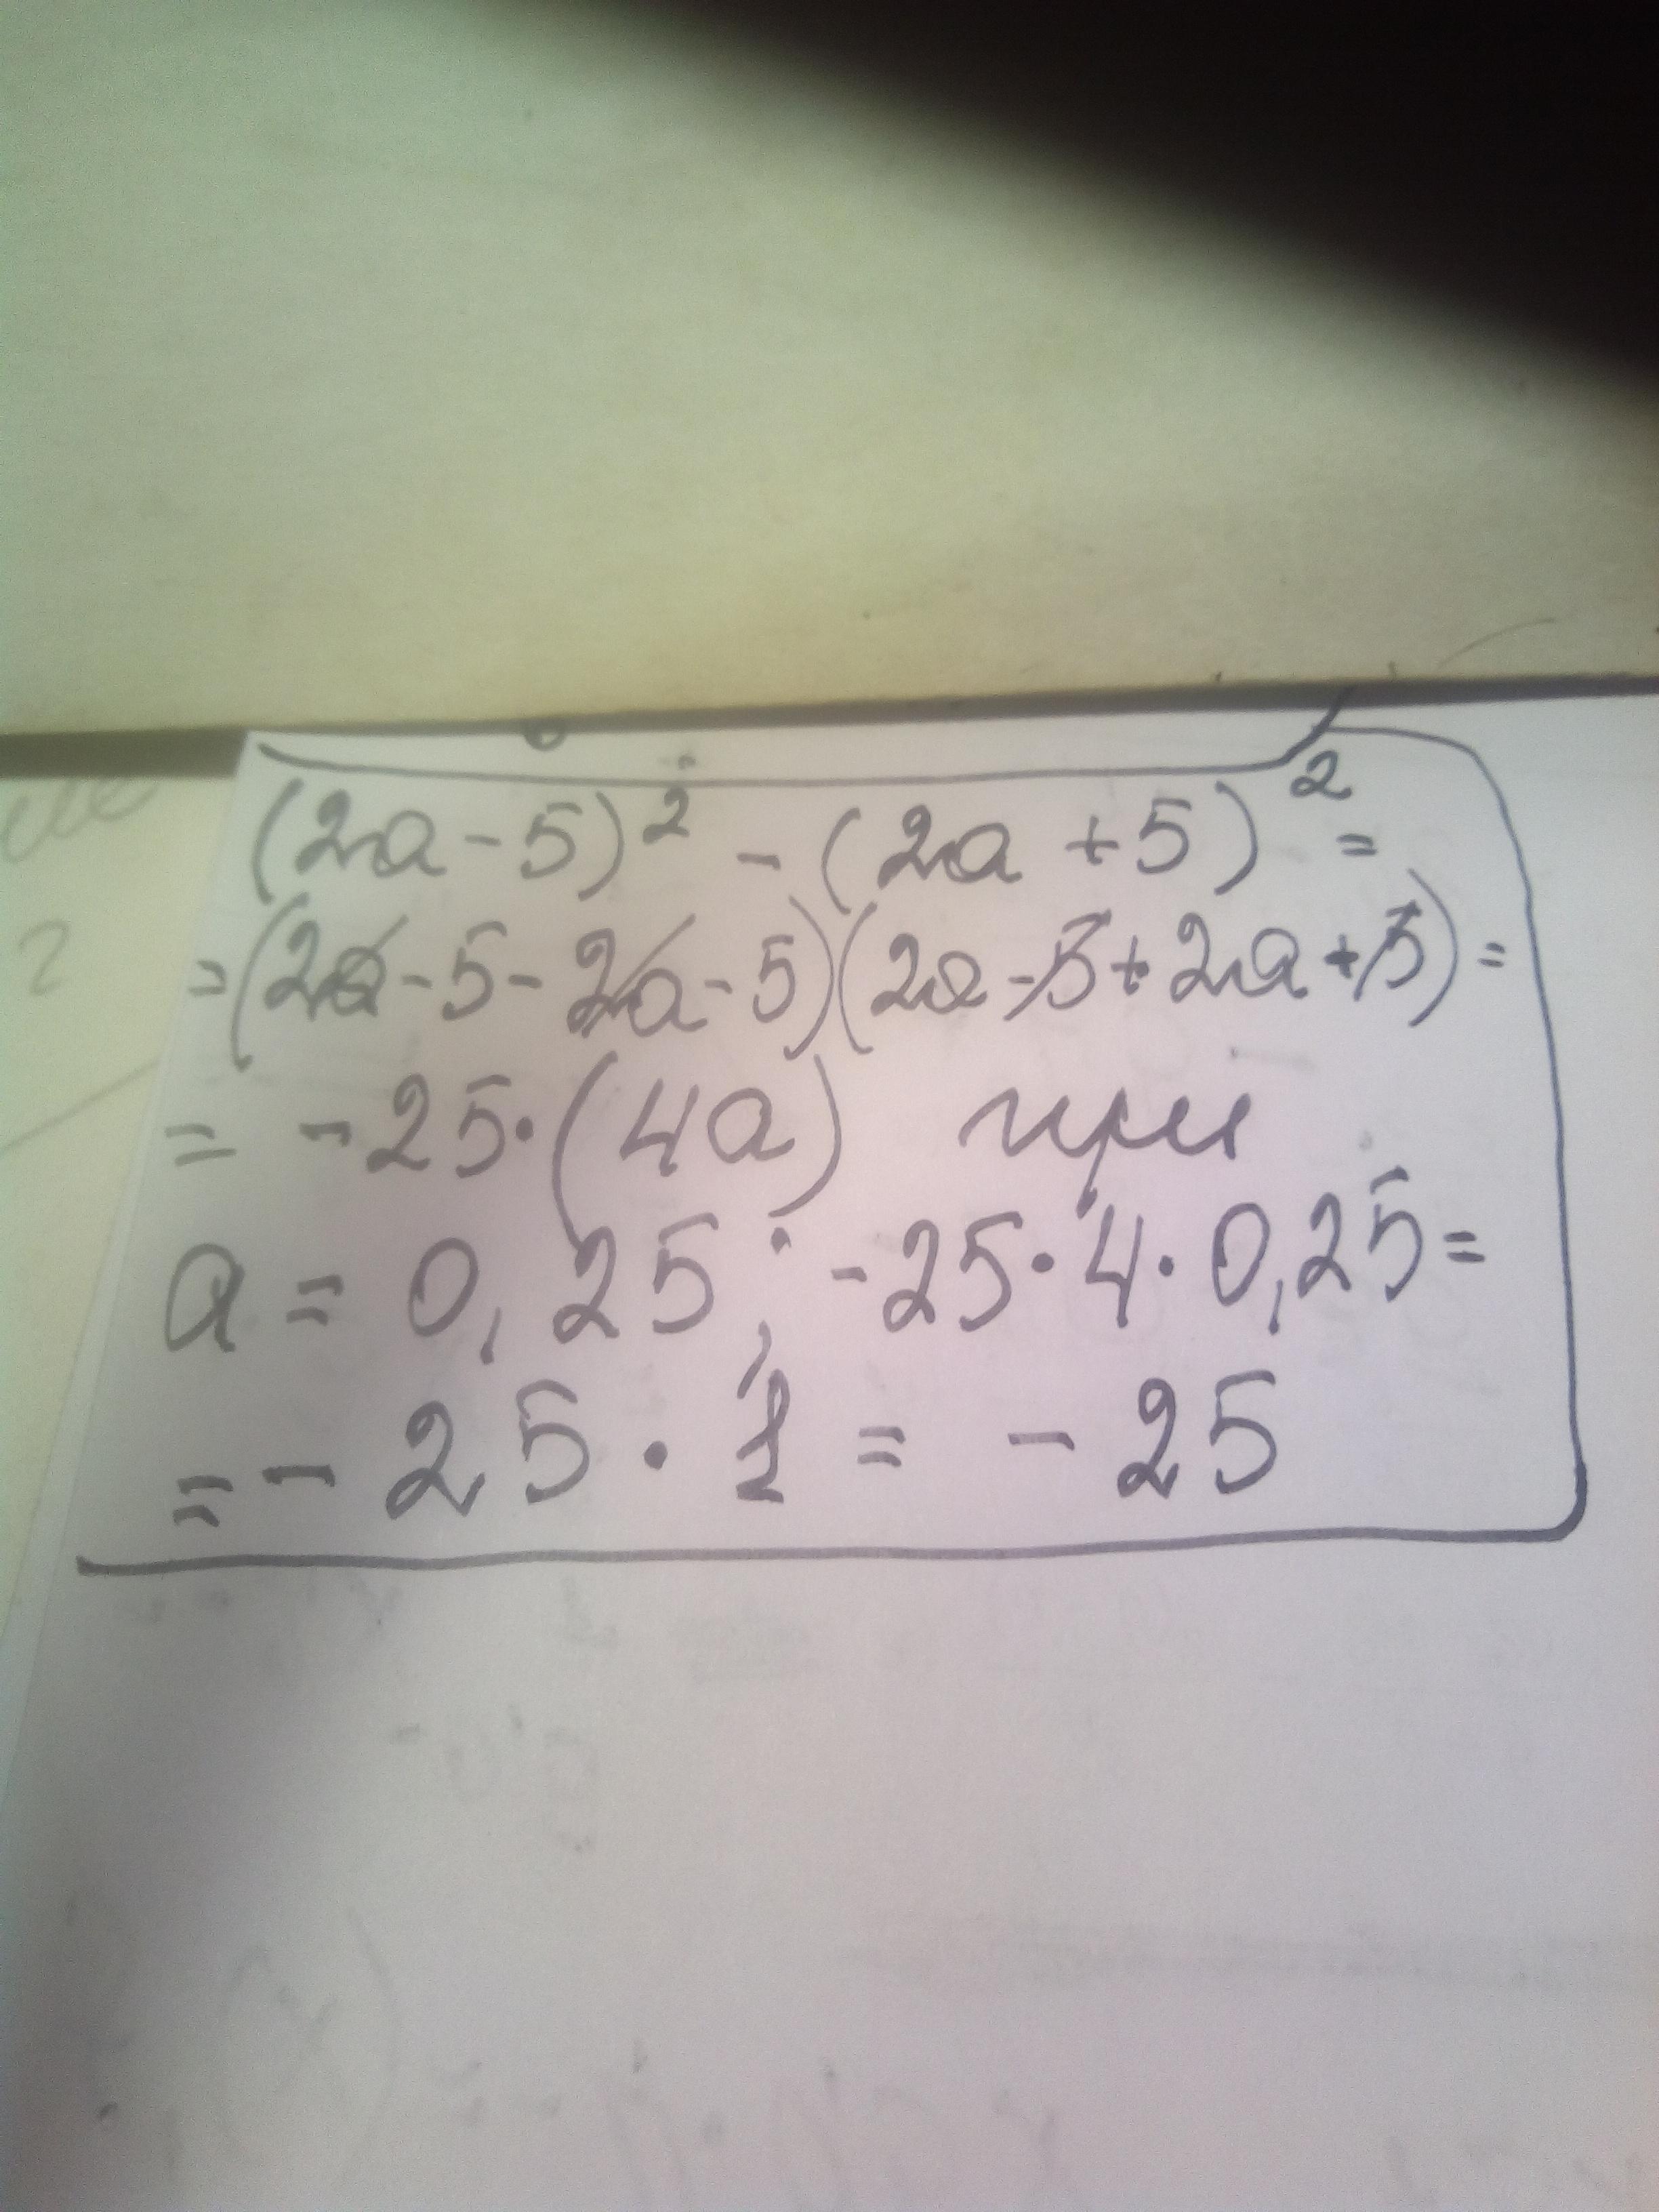 (2a - 5)² - (2a + 5)² =
= (2a - 5 - 2a - 5)(2a - 5 + 2a + 5) =
= - 25 · (4a) при
a = 0,25; - 25 · 4 · 0,25 =
= - 25 · 1 = - 25